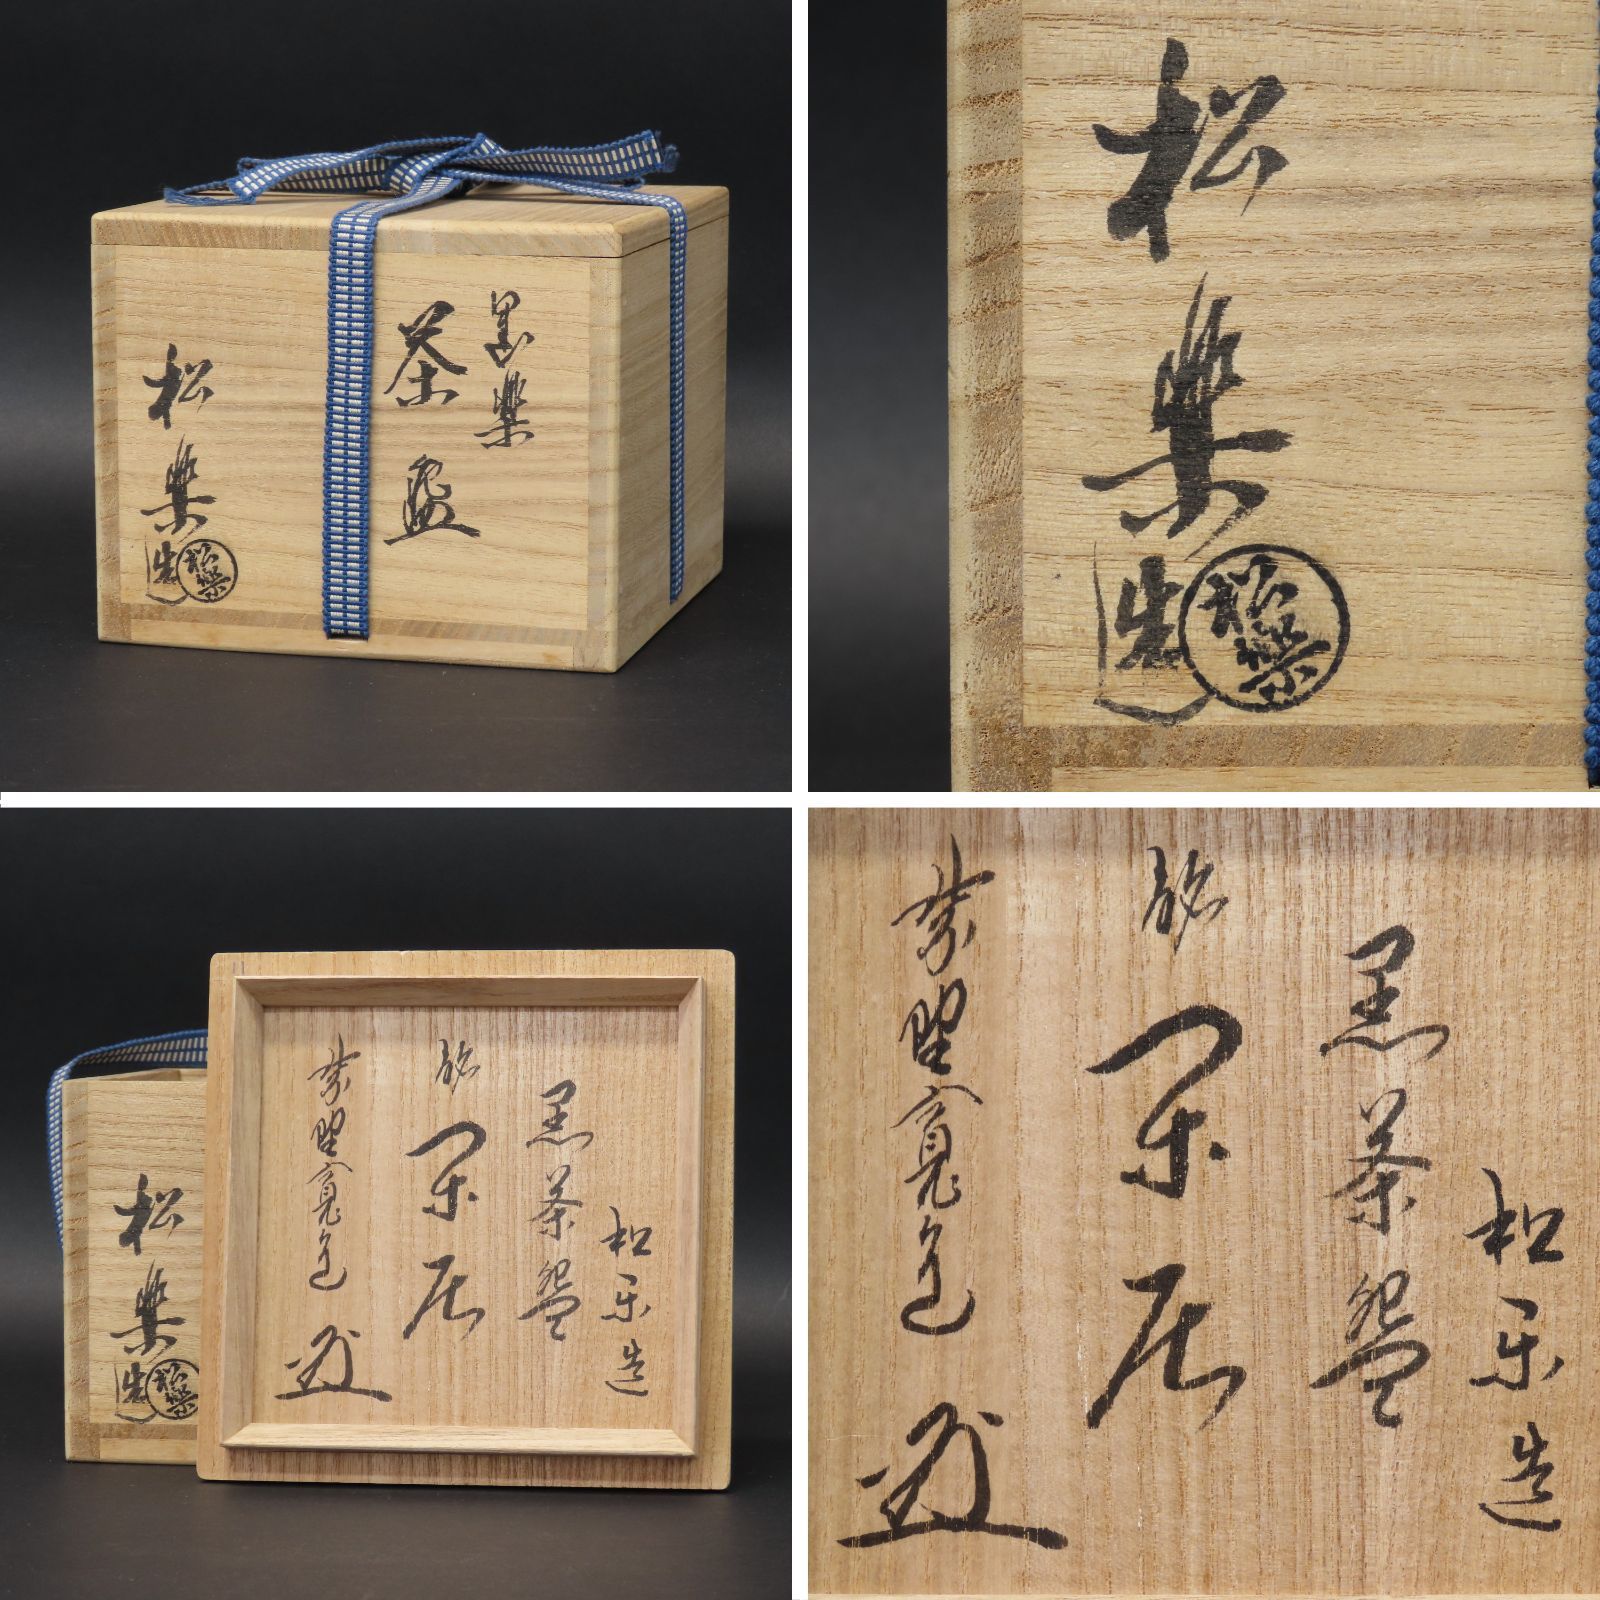 黒楽
茶盌
松楽造
松楽
松楽造
松楽
松楽造
黒茶盌
銘
閑居
紫野寛道
松楽造
松楽
松楽造
黒茶盌
銘
閑居
紫野寛道